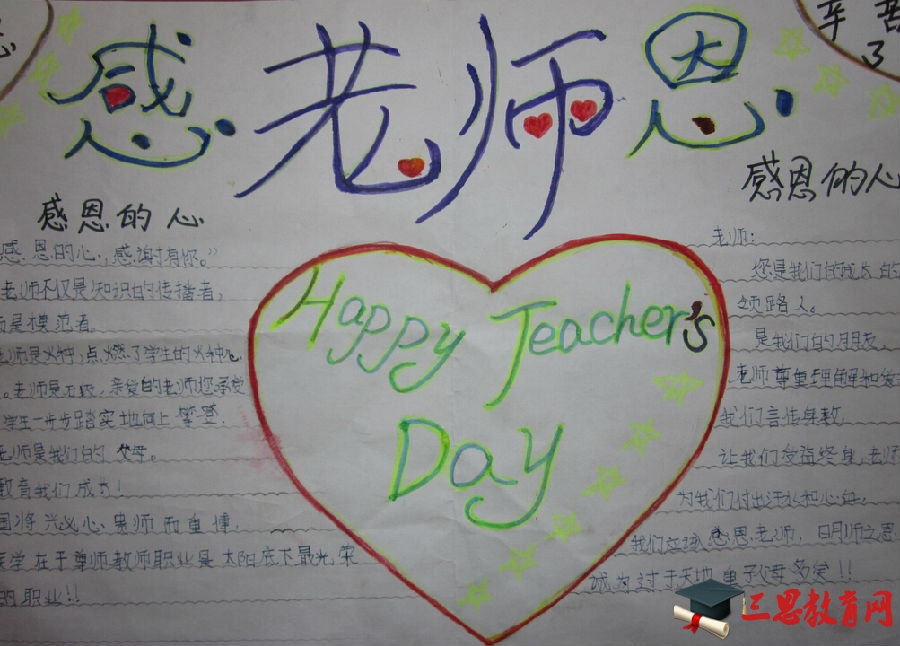 感老师恩
辛苦了
感恩的心
感恩的心,感谢有你。”
老师不仅是知识的传播者,
是模范者
老师是火种,点燃了学生的火种,
。老师是石段,亲爱的老师您承受
学生一步步踏实地向上攀登.
老师是我们的 父母。
教育我们成才!
国将兴必心 贵师 而重傅.
医学 在于尊师教师职业是 太阳底下最光荣
的职业!!
Happy Teacher's
Day
感恩的心
老师:
您是我们的成长的
领路人。
是我们的朋友.
老师尊重理解和
我们言传身教
让我们受益终身.老师
为我们付出汗水和心血.
我们应该 感恩老师.
成为 过于天地 重于父母 多矣!!
三思教育网